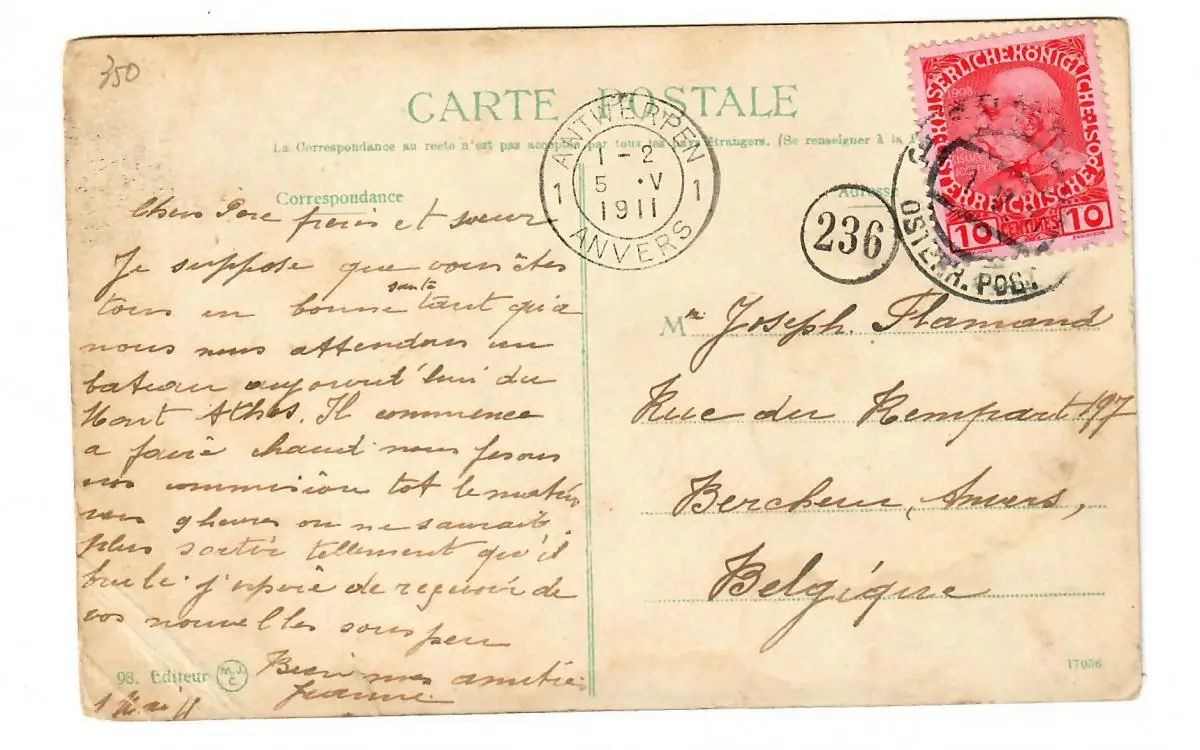 350
CARTE POSTALE
La Correspondance au recto n'est pas acceptée par tous les pays étrangers. (Se renseigner à la
Correspondance
Adresse
ANTWERPEN
1 - 2
1 5 .V 1
1911
ANVERS
236
KAISERLICHE KÖNIGLICHE
ÖSTERREICHISCHE POST
1908
10 CENTIMES 10
OSTERR. POST
Cher Père frères et sœur
Je suppose que vous êtes
tous en bonne santé tant qu'a
nous nous attendons un
bateau aujourd'hui du
Mont Athos. Il commence
a faire chaud nous fesons
nos commission tot le matin
vers 9 heures on ne saurait
plus sortir tellement qu'il
brule. j'espère de reçevoir de
vos nouvelles sous peu
Bien mes amitiés
Jeanne.
Mr Joseph Flamand
Rue du Rempart 197
Berchem, Anvers,
Belgique
98. Editeur M.J.C
17056
1 Mai 11